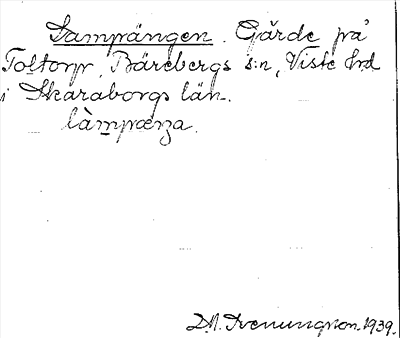 Lampängen. Gärde på
Toltorp, Bärebergs s:n, Viste hd
i Skaraborgs län.
làmpæŋa.
D.A. Ivenungson. 1939.